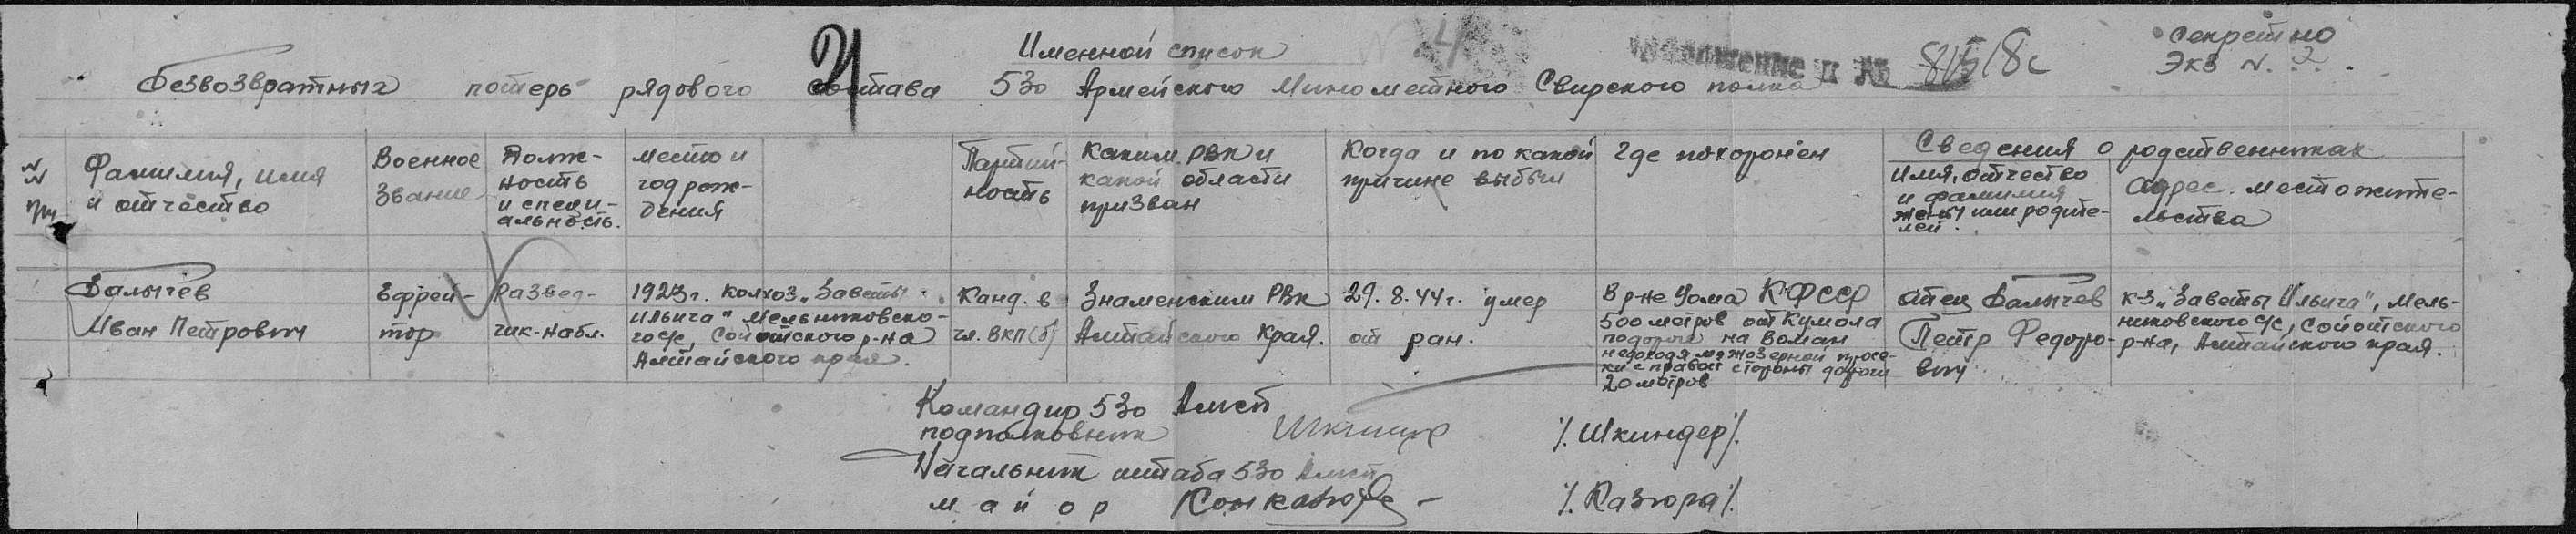 Секретно
Экз N. 2.
Именной список
Приложение к № 815/8с
Безвозвратных потерь рядового состава 530 Армейского Минометного Свирского полка
NN пп
Фамилия, имя
и отчество
Военное
звание
Долж-
ность
и специ-
альность.
место и
год рож-
дения
Партий-
ность
Каким РВК и
какой области
призван
Когда и по какой
причине выбыл
Где похоронен
Сведения о родственниках
Имя, отчество
и фамилия
жены или родите-
лей.
Адрес местожите-
льства
Балычев
Иван Петрович
Ефрей-
тор
развед-
чик-набл.
1923г. колхоз „Заветы
Ильича" Мельниковско-
го с/с, Сойотского р-на
Алтайского края.
Канд. в
чл. ВКП(б)
Знаменским РВК
Алтайского края.
29.8.44г. умер
от ран.
В р-не Уома КФССР
500 метров от Кумола
по дороге на Воман
не доходя межозерной
с правой стороны дороги
20 метров
отец Балычев
Петр Федоро-
вич
к-з „Заветы Ильича", Мель-
никовского с/с, Сойотского
р-на, Алтайского края.
Командир 530 Амсп
подполковник /.Шкиндер/.
Начальник штаба 530 Амсп
майор /.Казюра/.